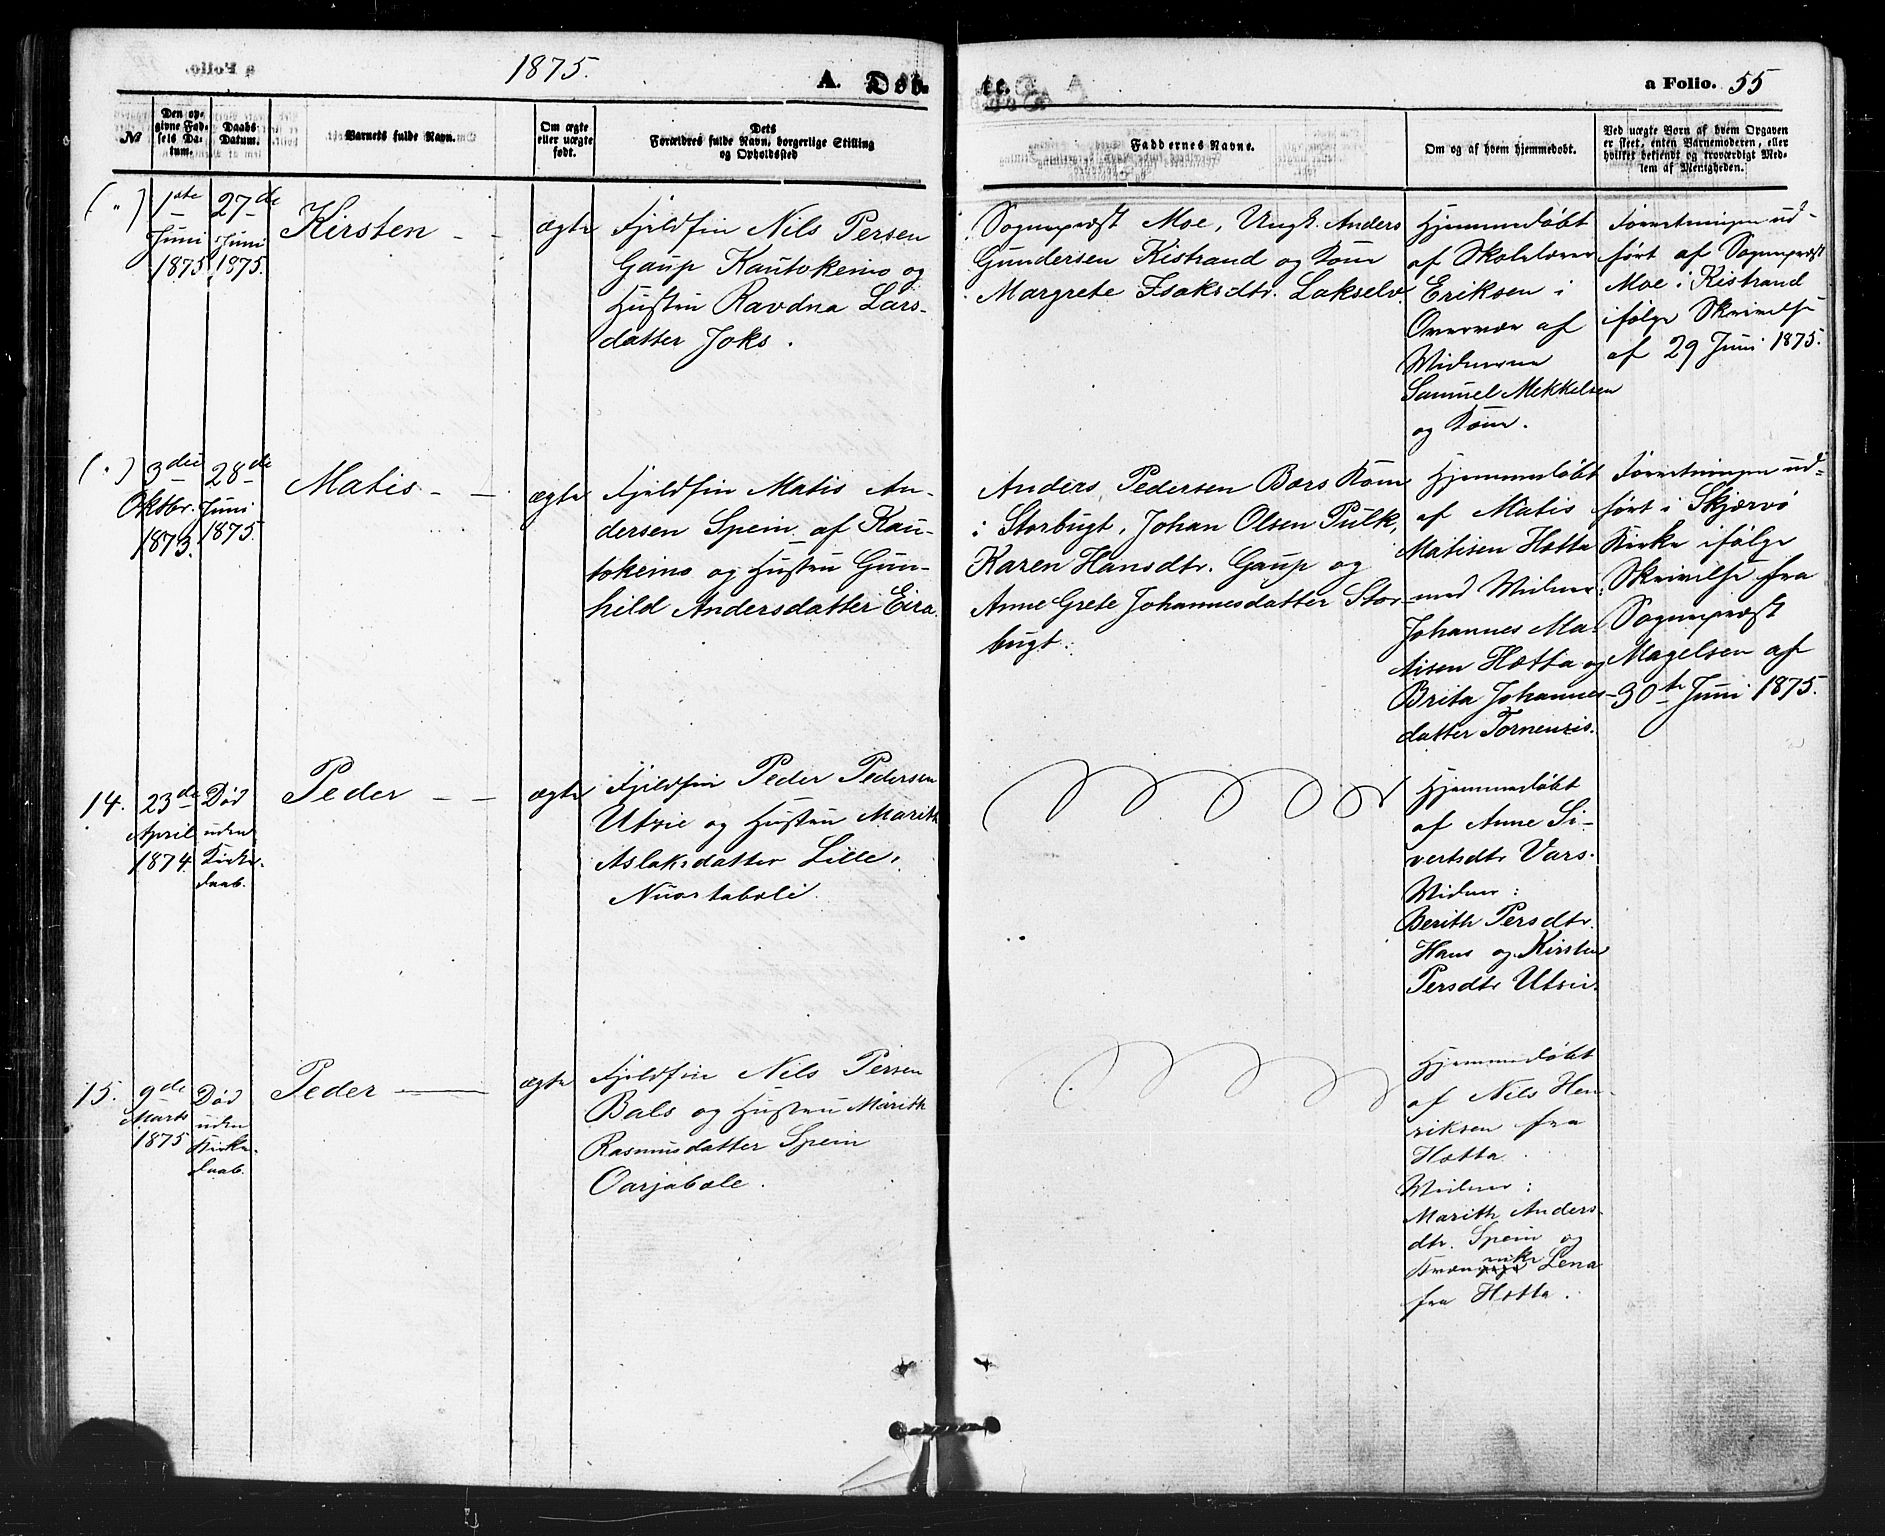 1875.
A. Døb
te.
a Folio. 55
№
Den op-
givne Fød-
sels Da-
tum.
Daabs
Datum.
Barnets fulde Navn.
Om ægte
eller uægte
født.
Dets
Forældres fulde Navn, borgerlige Stilling
og Opholdssted
Faddernes Navne.
Om og af hvem hjemmedøbt.
Ved uægte Børn af hvem Opgaven
er skeet, enten Barnemoderen, eller
hvilket bekjendt og troværdigt Med-
lem af Menigheden.
(")
1ste
Juni
1875
27de
Juni
1875.
Kirsten - -
ægte
Fjeldfin Nils Persen
Gaup Kautokeino og
Hustru Ravdna Lars-
datter Joks.
Sognepræst Moe, Ungk. Anders
Gundersen Kistrand og Kone
Margrete Isaksdtr. Lakselv.
Hjemmedøbt
af Skolelærer
Eriksen i
Overvær af
Widnerne
Samuel Mekkelsen
og Kone.
Forretningen ud-
ført af Sognepræst
Moe i Kistrand
ifølge Skrivelse
af 29 Juni 1875.
(")
3die
Oktbr.
1873.
28de
Juni
1875.
Matis - -
ægte
Fjeldfin Matis An-
dersen Spein af Kau-
tokeino og Hustru Gun-
hild Andersdatter Eira.
Anders Pedersen Bærs Kone
i Storbugt, Johan Olsen Pulk,
Karen Hansdtr. Gaup og
Anne Grete Johannesdatter Stor-
bugt.
Hjemmedøbt
af Matis
Matisen Hætta
med Widner:
Johannes Ma-
tisen Hætta og
Brita Johannes-
datter Tornensis.
Forretningen ud-
ført i Skjærvø
Kirke ifølge
Skrivelse fra
Sognepræst
Magelsen af
30te Juni 1875.
14.
23de
April
1874.
Død
uden
Kirke-
daab.
Peder - -
ægte
Fjeldfin Peder Pedersen
Utsie og Hustru Marith
Aslaksdatter Lille,
Nuortabele.
Hjemmedøbt
af Anne Si-
vertsdtr Vars.
Widner:
Berith Persdtr.
Hans og Kirsten
Persdtr Utsie.
15.
9de
Marts
1875
Død
uden
Kirke-
daab.
Peder —
ægte
Fjeldfin Nils Persen
Bals og Hustru Marith
Rasmusdatter Spein
Oarjabele.
Hjemmedøbt
af Nils Hen-
riksen fra
Hætta.
Widner:
Marith Anders-
dtr. Spein og
Lena
fra Hætta.